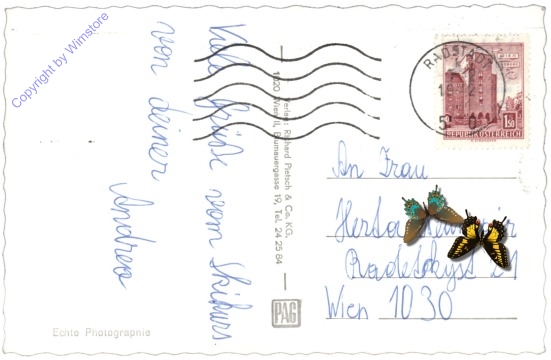 Copyright by Wimstore
Viele Grüße vom Skikurs.
von deiner
Andrea
Echte Photographie
Verlag: Richard Pietsch & Co. KG.
1020 Wien II, Blumauergasse 19, Tel. 24 25 84
PAG
RADSTADT
REPUBLIK ÖSTERREICH
1.50
An Frau
Herta
Radetzkyst 21
Wien 1030